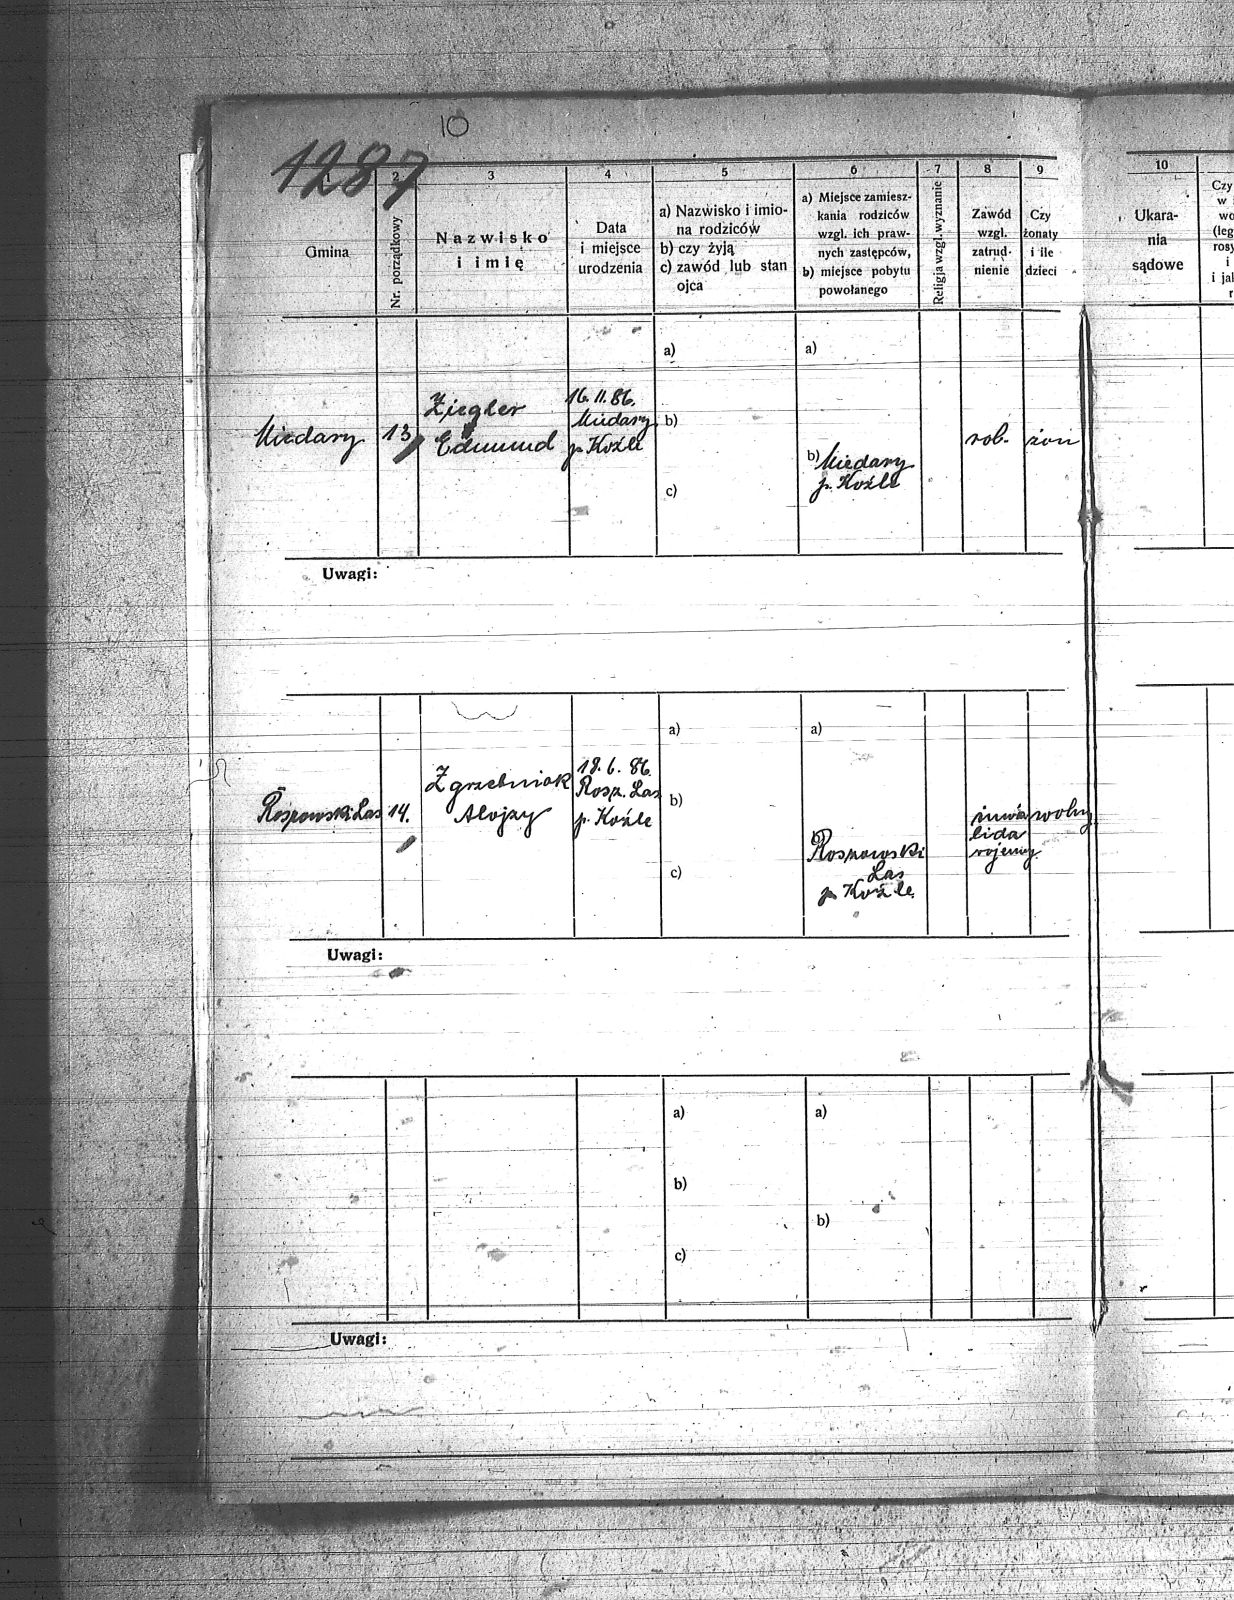 10
1287
1
2
3
4
5
6
7
8
9
10
Gmina
Nr. porządkowy
Nazwisko
i imię
Data
i miejsce
urodzenia
a) Nazwisko i imio-
na rodziców
b) czy żyją
c) zawód lub stan
ojca
a) Miejsce zamiesz-
kania rodziców
wzgl. ich praw-
nych zastępców,
b) miejsce pobytu
powołanego
Religja wzgl. wyznanie
Zawód
wzgl.
zatrud-
nienie
Czy
żonaty
i ile
dzieci
Ukara-
nia
sądowe
Czy
w
wo
(leg
rosy
i
i jak
r
Miedary
13
Ziegler
Edmund
16.11.86.
Miedary
p. Koźle
a)
b)
c)
a)
b) Miedary
p. Koźle
rob.
żon
Uwagi:
Roszowski Las
14.
Zgrzebniok
Alojzy
18.6.86.
Rosz. Las
p. Koźle
a)
b)
c)
a)
b)
Roszowski
Las
p. Koźle
inwa
lida
wojenny
wolny
Uwagi:
a)
b)
c)
a)
b)
Uwagi: